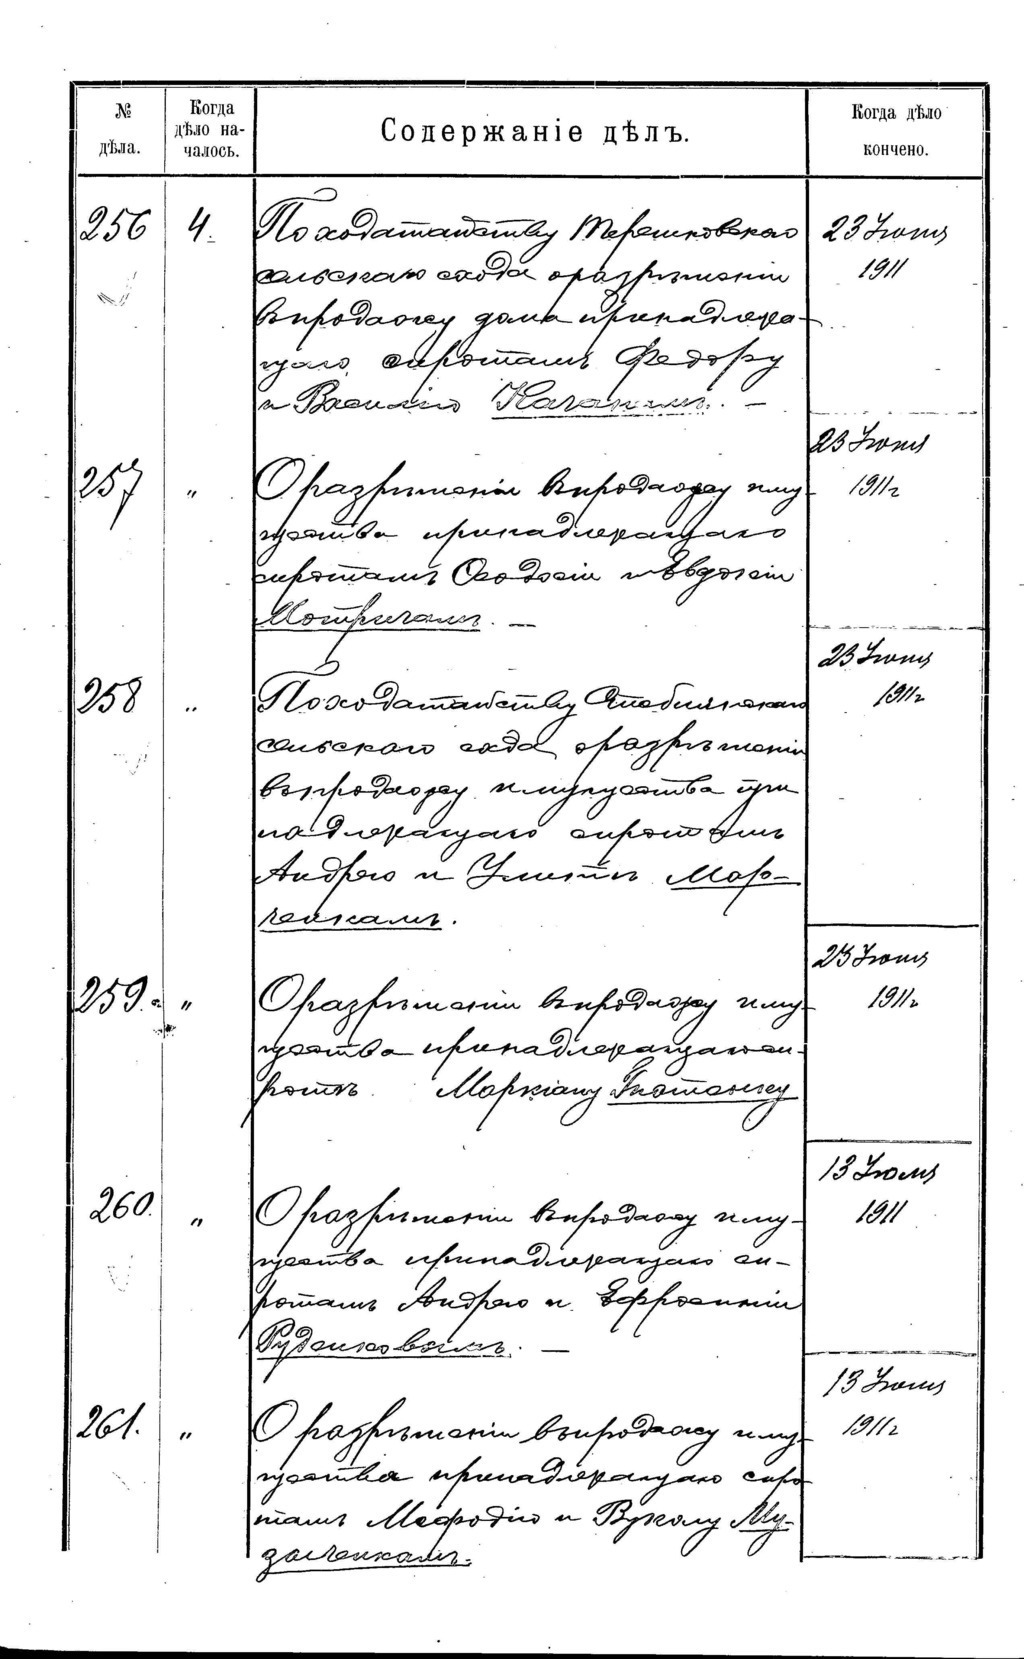 № дѣла.
Когда дѣло на-
чалось.
Содержаніе дѣлъ.
Когда дѣло
кончено.
256 4. По ходатайству Терешковскаго 23 Іюня
сельскаго схода о разрѣшеніи 1911
въ продажу дома принадлежа-
щаго сиротамъ Федору
и Василію Каганамъ. —
23 Іюня
257 " О разрѣшеніи въ продажу иму 1911г
щества принадлежащаго
сиротамъ Феодосіи и Евдокіи
Мотричамъ. —
23 Іюня
258 " По ходатайству Стеблянскаго 1911г
сельскаго схода о разрѣшеніи
въ продажу имущества при
надлежащаго сиротамъ
Андрею и Улитѣ Мар-
ченкамъ.
23 Іюня
259. " О разрѣшеніи въ продажу иму 1911г
щества принадлежащаго си-
ротѣ Маркіану Гнотенку
13 Іюля
260. " О разрѣшеніи въ продажу иму- 1911
щества принадлежащаго си-
ротамъ Андрею и Ефросиніи
Руденковымъ. —
13 Іюня
261. " О разрѣшеніи въ продажу иму- 1911г
щества принадлежащаго сиро
тамъ Мефодію и Вуколу Му-